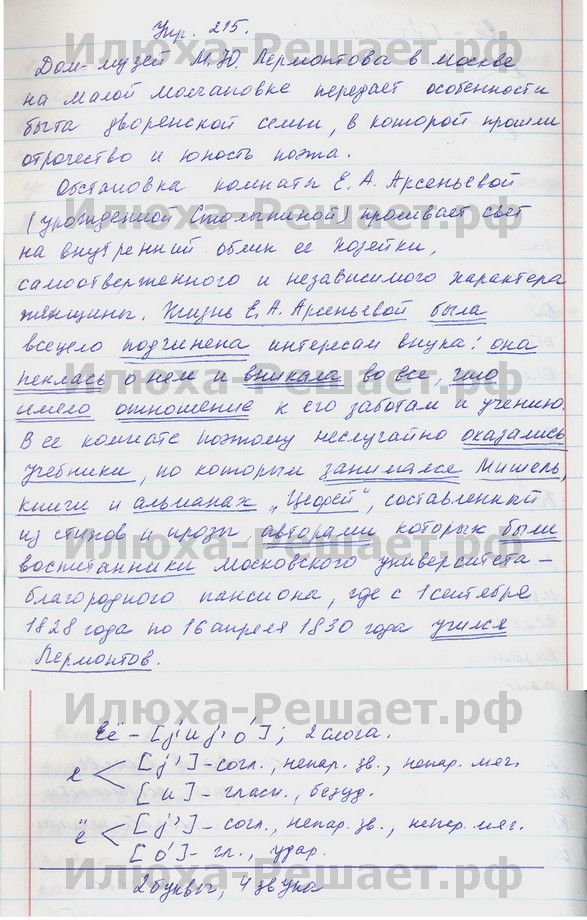 Упр. 215.
Илюха-Решает.рф
Дом-музей М.Ю. Лермонтова в Москве
на Малой Молчановке передает особенности
быта дворянской семьи, в которой прошли
отрочество и юность поэта.
Обстановка комнаты Е.А. Арсеньевой
(урожденной Столыпиной) проливает свет
Илюха-Решает.рф
на внутренний облик ее хозяйки,
самоотверженного и независимого характера
женщины. Жизнь Е.А. Арсеньевой была
всецело подчинена интересам внука: она
пеклась о нем и вникала во все, что
имело отношение к его заботам и учению.
В ее комнате поэтому неслучайно оказались
учебники, по которым занимался Мишель,
книги и альманах „Цефей“, составленный
из стихов и прозы, авторами которых были
Илюха-Решает.рф
воспитанники Московского университета –
благородного пансиона, где с 1 сентября
1828 года по 16 апреля 1830 года учился
Лермонтов.
Илюха-Решает.рф
Её – [j'иj'о́]; 2 слога.
е [j'] – согл., непар. зв., непар. мяг.
[и] – гласн., безуд.
ё [j'] – согл., непар. зв., непар. мяг.
[о́] – гл., удар.
2 буквы, 4 звука
Илюха-Решает.рф